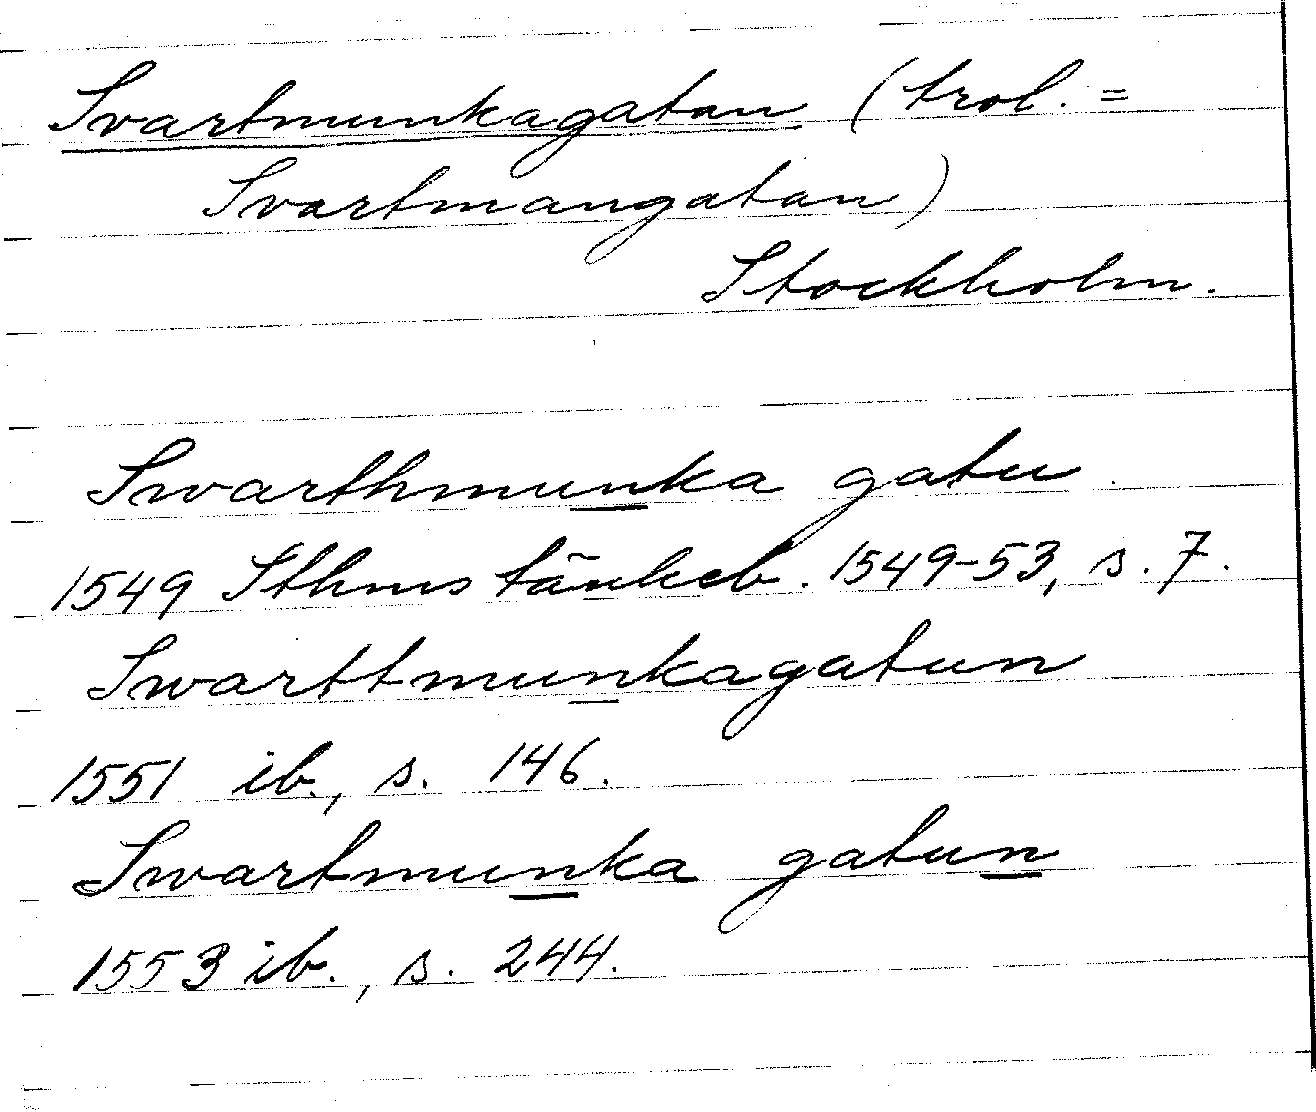 Svartmunkagatan (trol. =
Svartmangatan)
Stockholm.
Swarthmunka gatu
1549 Sthms tänkeb. 1549-53, s. 7.
Swarttmunkagatun
1551 ib., s. 146.
Swartmunka gatun
1553 ib., s. 244.